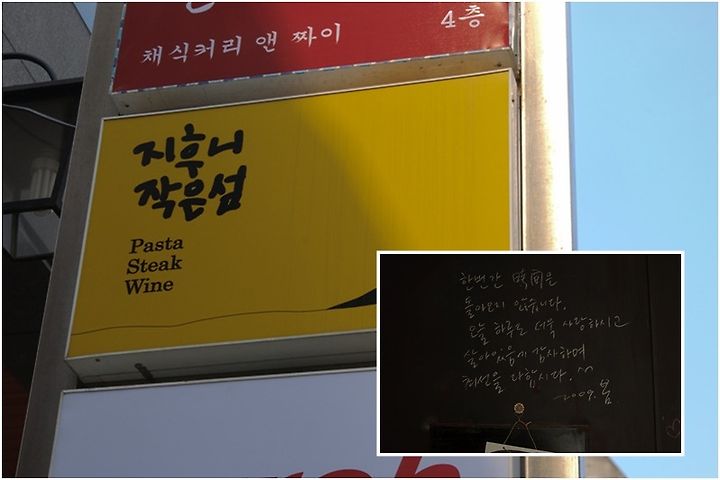 4층
채식커리 앤 짜이
지후니
작은섬
Pasta
Steak
Wine
한번간 時間은
돌아오지 않습니다.
오늘 하루도 더욱 사랑하시고
살아있음에 감사하며
최선을 다합시다. ^^
2009. 봄